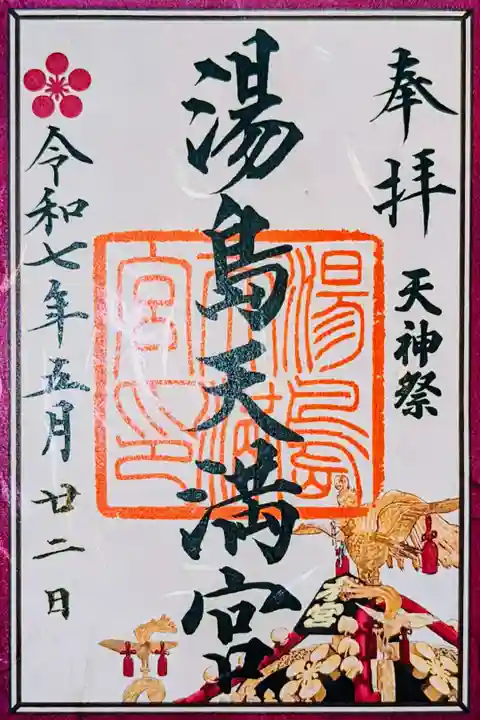 奉拝 天神祭
湯島天満宮
湯島天満宮之印
令和七年五月廿二日